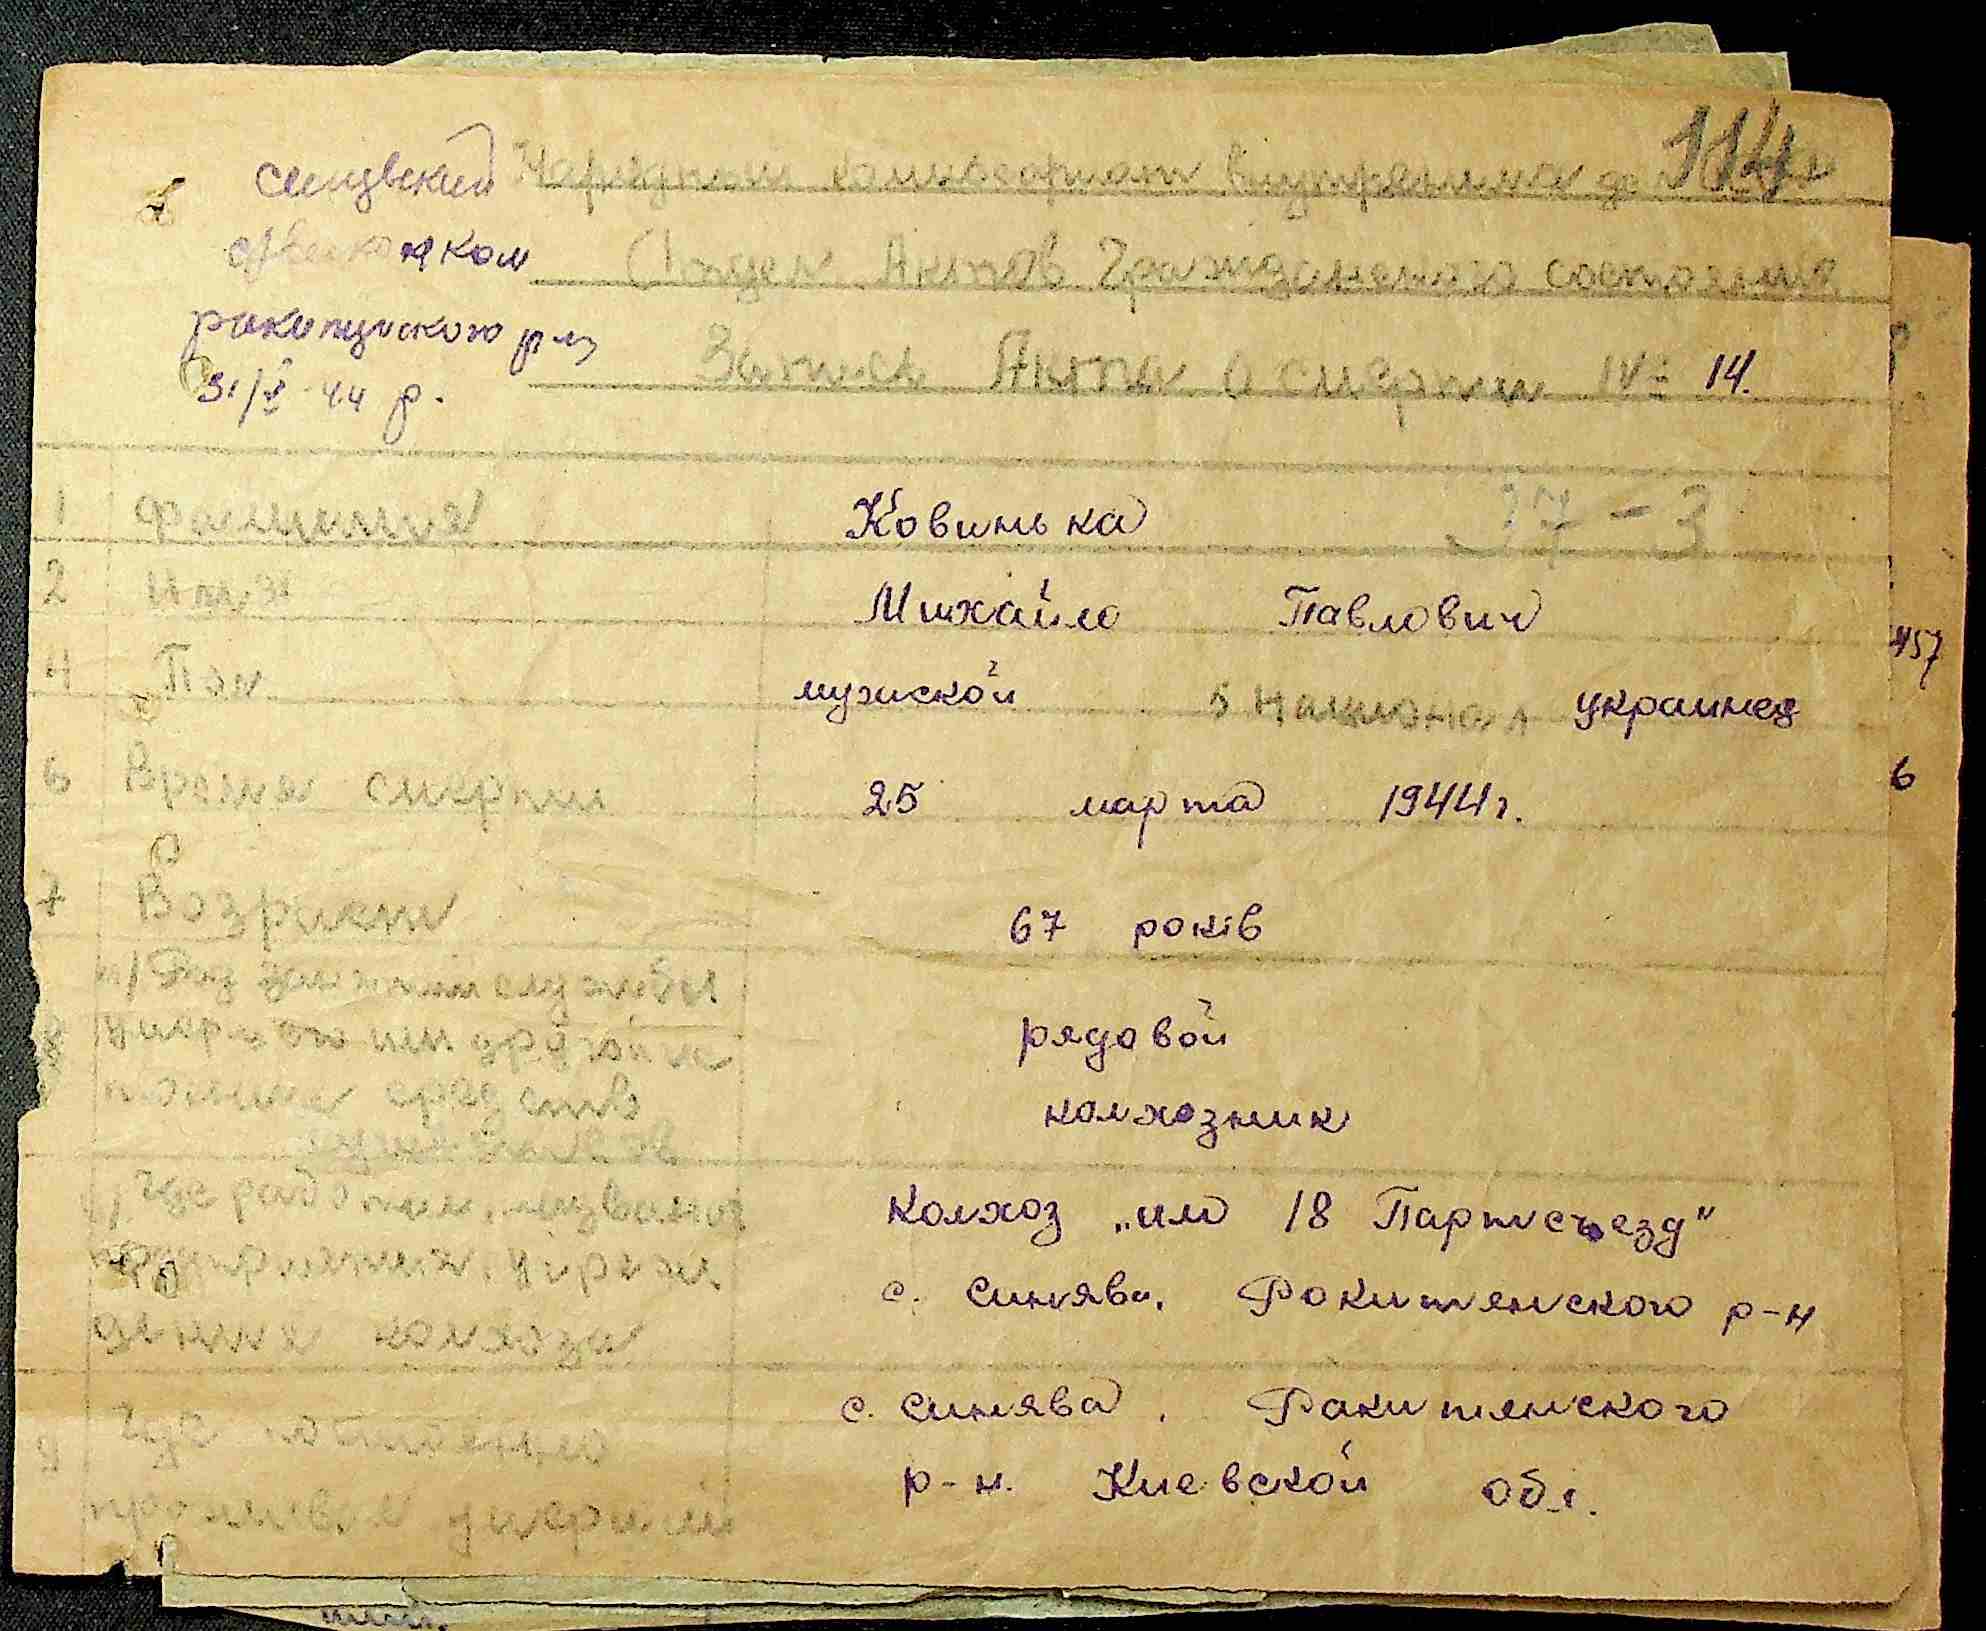 114
Народный комиссариат внутренних дел
Отдел Актов Гражданского состояния
ракитнуского р-ну
31/V-44 р.
Запись Акта о смерти № 14.
37-3
1 фамилия Ковинька
2 имя Михайло Павлович
4 Пол мужской 5 Национал украинец
6 Время смерти 25 марта 1944 г.
7 Возраст 67 років
8 рядовой
колхозник
средств
Где работал, названия Колхоз „им 18 Партсъезд"
предприятия, с. Синява, Рокитянского р-н
колхоза
9 Где постоянно с. Синява, Ракитянского
проживал умерший р-н. Киевской обл.
457
6